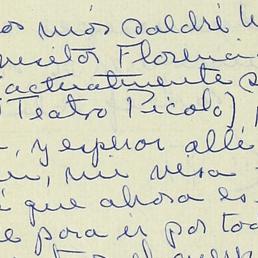 os más saldré
Florenci
actualmente s
(Teatro Picolo)
, y esperar allí
, mi visa
que ahora es
e para ir por tod